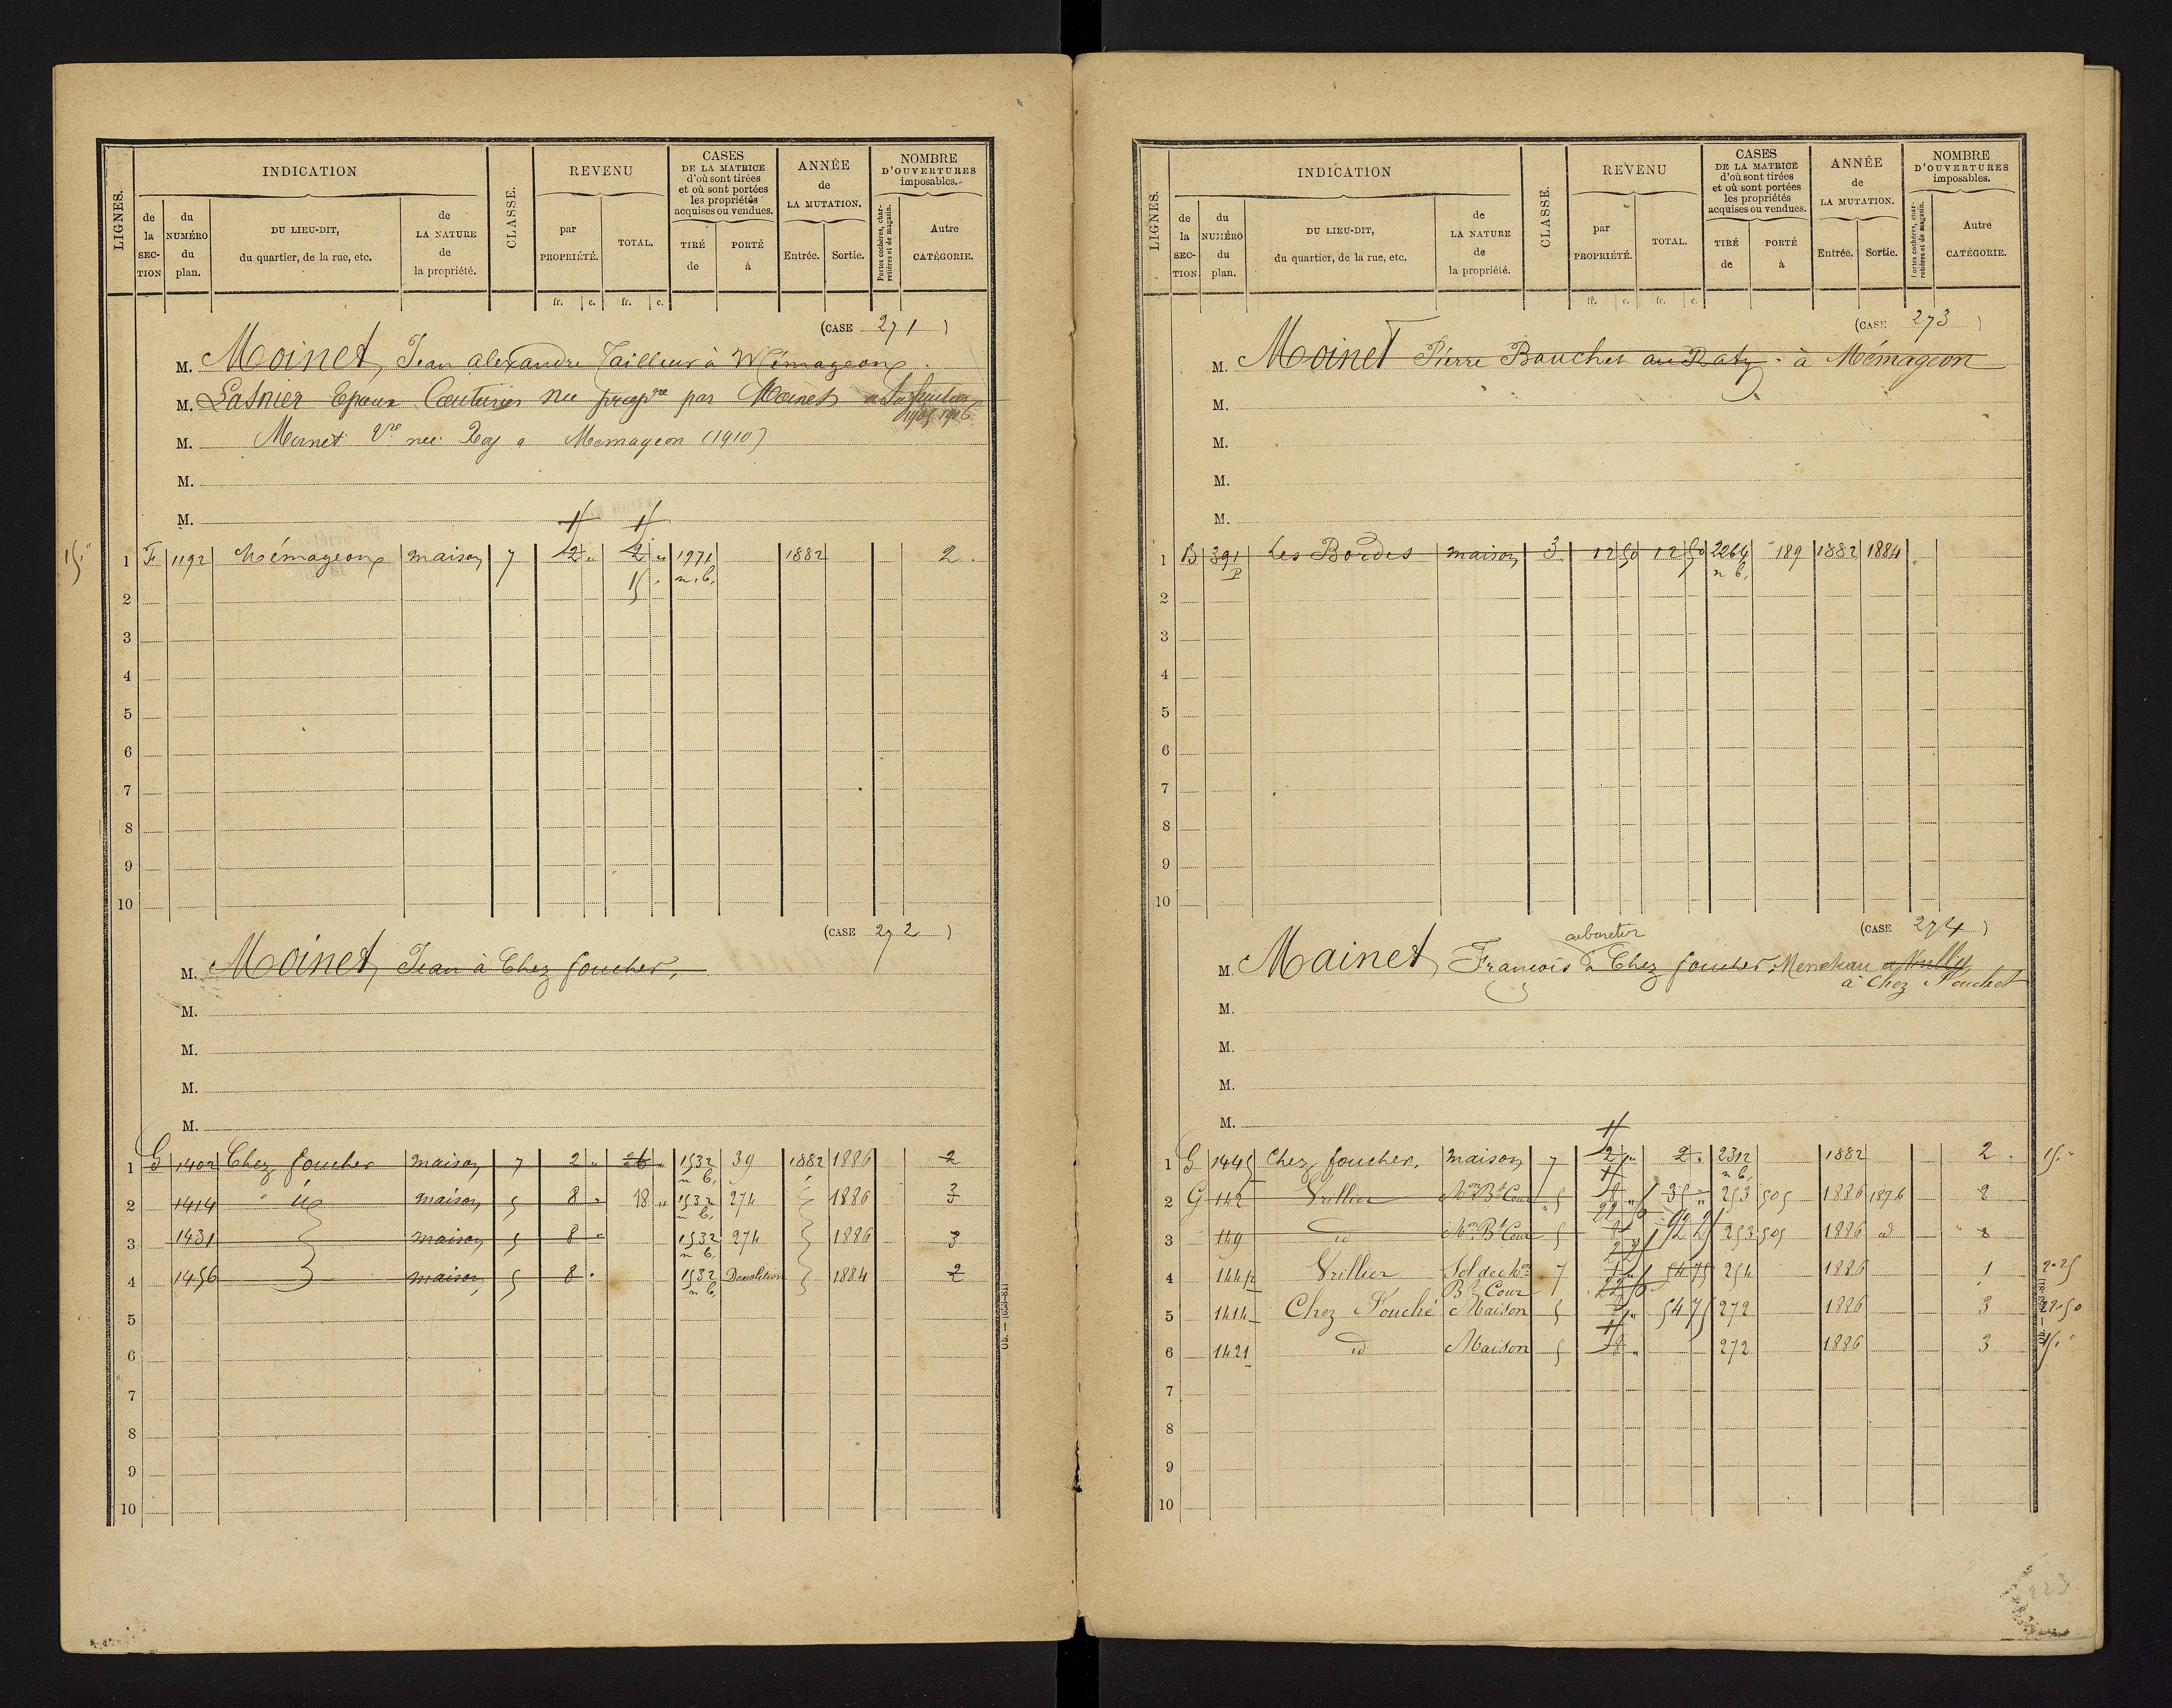 LIGNES.
INDICATION
de la SECTION
du NUMÉRO du plan.
DU LIEU-DIT, du quartier, de la rue, etc.
de LA NATURE de la propriété.
CLASSE.
REVENU
par PROPRIÉTÉ.
TOTAL.
CASES DE LA MATRICE d'où sont tirées et où sont portées les propriétés acquises ou vendues.
TIRÉ de
PORTÉ à
ANNÉE de LA MUTATION.
Entrée.
Sortie.
NOMBRE D'OUVERTURES imposables.
Portes cochères, charretières et de magasin.
Autre CATÉGORIE.
fr. c. fr. c.
(CASE 271)
M. Moinet, Jean alexandre Tailleur à Mémageon
M. Lasnier Epoux Couturier nu propre par Moinet
1905 1906
M. Moinet Vve née Roy a Memageon (1910)
M.
M.
15 "
1 F 1192 Mémageon maison 7 2 " 2 " 1971 1882 2
15 " n. b.
2
3
4
5
6
7
8
9
10
(CASE 272)
M. Moinet, Jean à Chez foucher,
M.
M.
M.
M.
1 G 1402 Chez foucher maison 7 2 " 26 " 1532 39 1882 1886 2
n b.
2 1414 id maison 5 8 " 18 " 1532 274 1886 3
n b.
3 1431 maison 5 8 " 1532 274 1886 3
n b.
4 1456 maison 5 8 " 1532 Demolition 1884 2
n b.
5
6
7
8
9
10
LIGNES.
INDICATION
de la SECTION
du NUMÉRO du plan.
DU LIEU-DIT, du quartier, de la rue, etc.
de LA NATURE de la propriété.
CLASSE.
REVENU
par PROPRIÉTÉ.
TOTAL.
CASES DE LA MATRICE d'où sont tirées et où sont portées les propriétés acquises ou vendues.
TIRÉ de
PORTÉ à
ANNÉE de LA MUTATION.
Entrée.
Sortie.
NOMBRE D'OUVERTURES imposables.
Portes cochères, charretières et de magasin.
Autre CATÉGORIE.
fr. c. fr. c.
(CASE 273)
M. Moinet Pierre Boucher au Raty à Mémageon
M.
M.
M.
M.
1 B 391 Les Bordes maison 3 12 50 12 50 2264 189 1882 1884
P n b.
2
3
4
5
6
7
8
9
10
(CASE 274)
cabaretier
M. Mainet François à Chez foucher,
à Chez Fouchet
M.
M.
M.
M.
1 G 1445 Chez foucher. maison 7 2 " 2 " 2312 1882 2 15 "
n b.
2 G 142 Vrillier Mon Bt Cour 5 8 " 35 " 253 505 1886 1896 2
3 149 id Mon Bt Cour 5 92 25 253 505 1886 id
4 144p Vrillier Sol de Mon 7 54 75 254 1886 1 2 25
Bt Cour
5 1414 Chez Fouché Maison 5 54 75 272 1886 3 22 50
6 1421 id Maison 5 8 " 272 1886 3 15 "
7
8
9
10